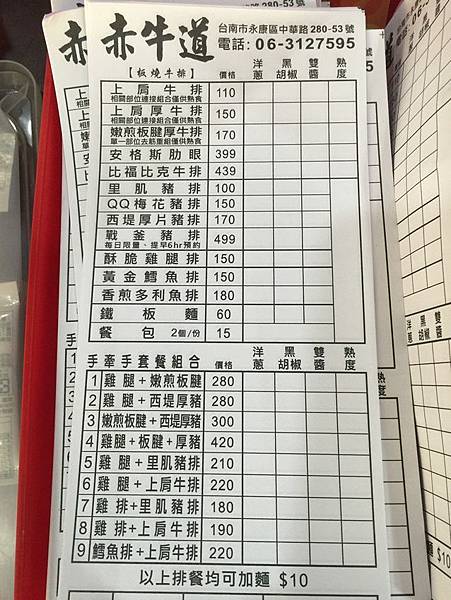 赤牛道
台南市永康區中華路280-53號
電話：06-3127595
【板燒牛排】 價格 洋蔥 黑胡椒 雙醬 熟度
上肩牛排 110
相關部位連接組合僅供熟食
上肩厚牛排 150
相關部位連接組合僅供熟食
嫩煎板腱厚牛排 170
單一部位去筋重組僅供熟食
安格斯肋眼 399
比福比克牛排 439
里肌豬排 100
QQ梅花豬排 150
西堤厚片豬排 170
戰釜豬排 499
每日限量、提早6hr預約
酥脆雞腿排 150
黃金鱈魚排 150
香煎多利魚排 180
鐵板麵 60
餐包 2個/份 15
手牽手套餐組合 價格 洋蔥 黑胡椒 雙醬 熟度
1 雞腿+嫩煎板腱 280
2 雞腿+西堤厚豬 280
3 嫩煎板腱+西堤厚豬 300
4 雞腿+板腱+厚豬 420
5 雞腿+里肌豬排 210
6 雞腿+上肩牛排 220
7 雞排+里肌豬排 180
8 雞排+上肩牛排 190
9 鱈魚排+上肩牛排 220
以上排餐均可加麵 $10